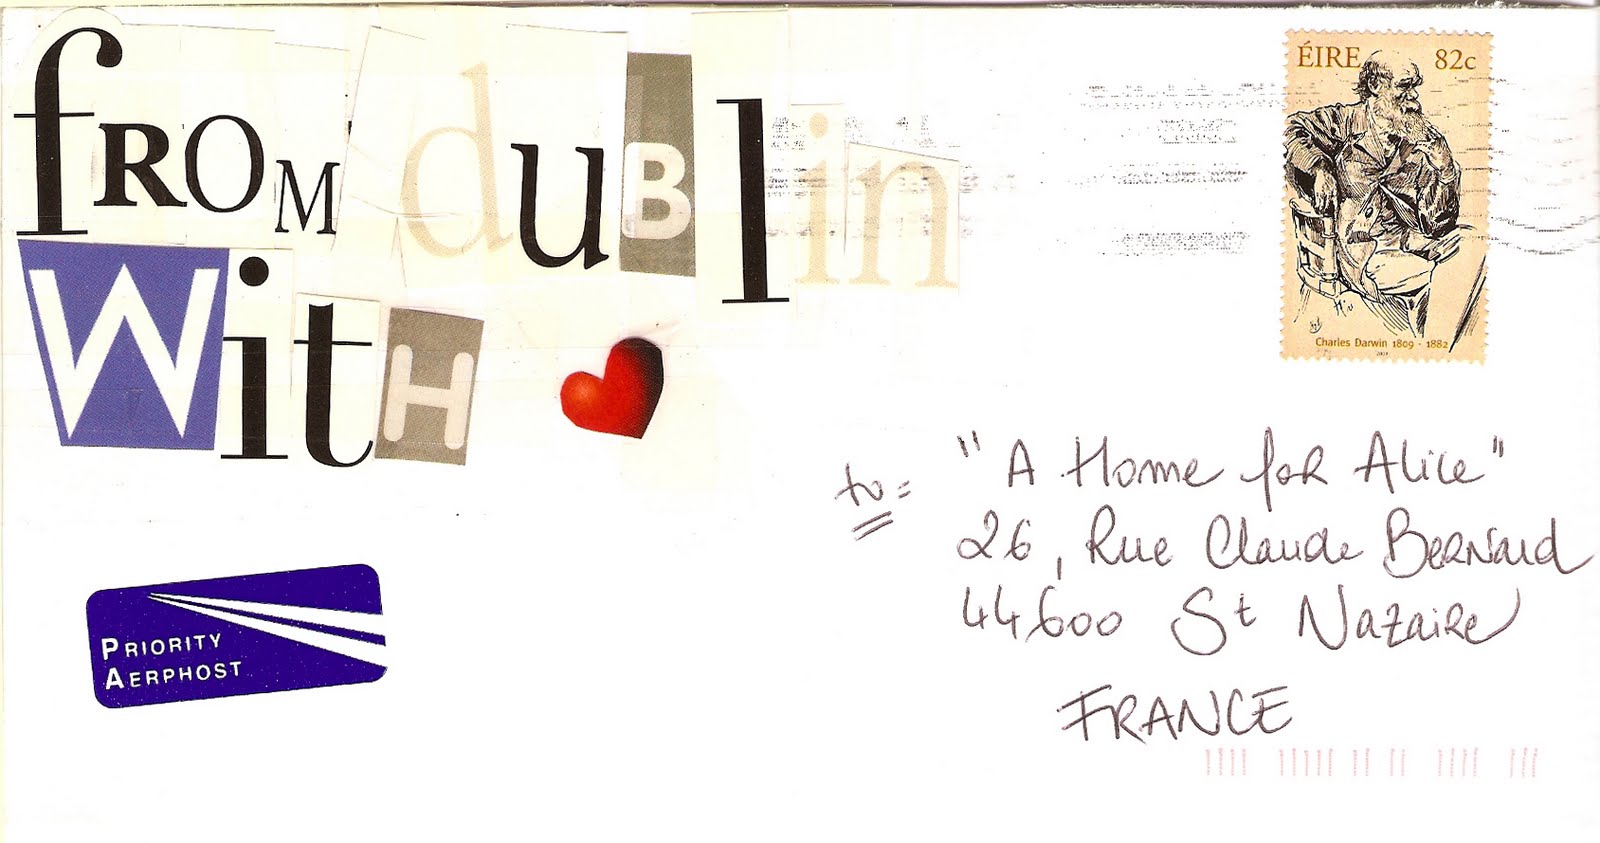 fROM duBlin
WitH
ÉIRE 82c
Charles Darwin 1809 - 1882
to =
"A Home for Alice"
26, Rue Claude Bernard
44600 St Nazaire
FRANCE
PRIORITY
AERPHOST